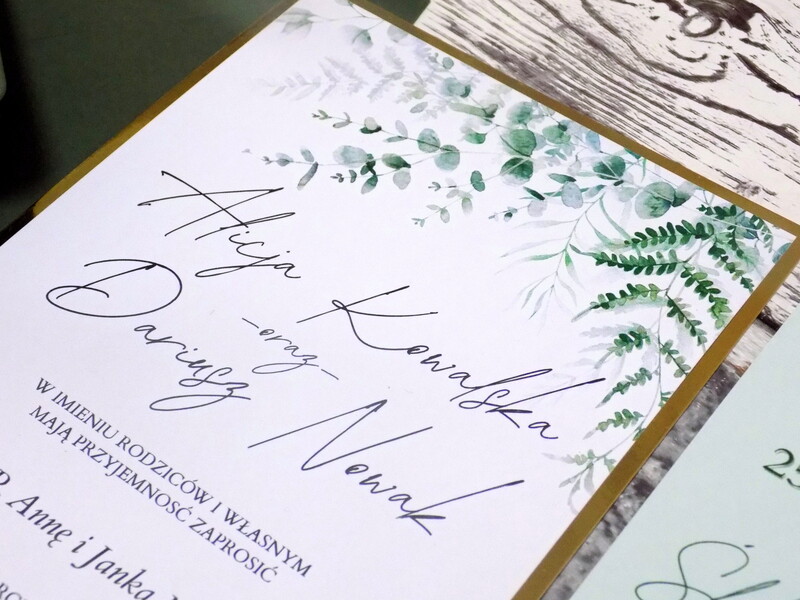 Alicja Kowalska
-oraz-
Dariusz Nowak
W IMIENIU RODZICÓW I WŁASNYM
MAJĄ PRZYJEMNOŚĆ ZAPROSIĆ
P. Annę i Janka